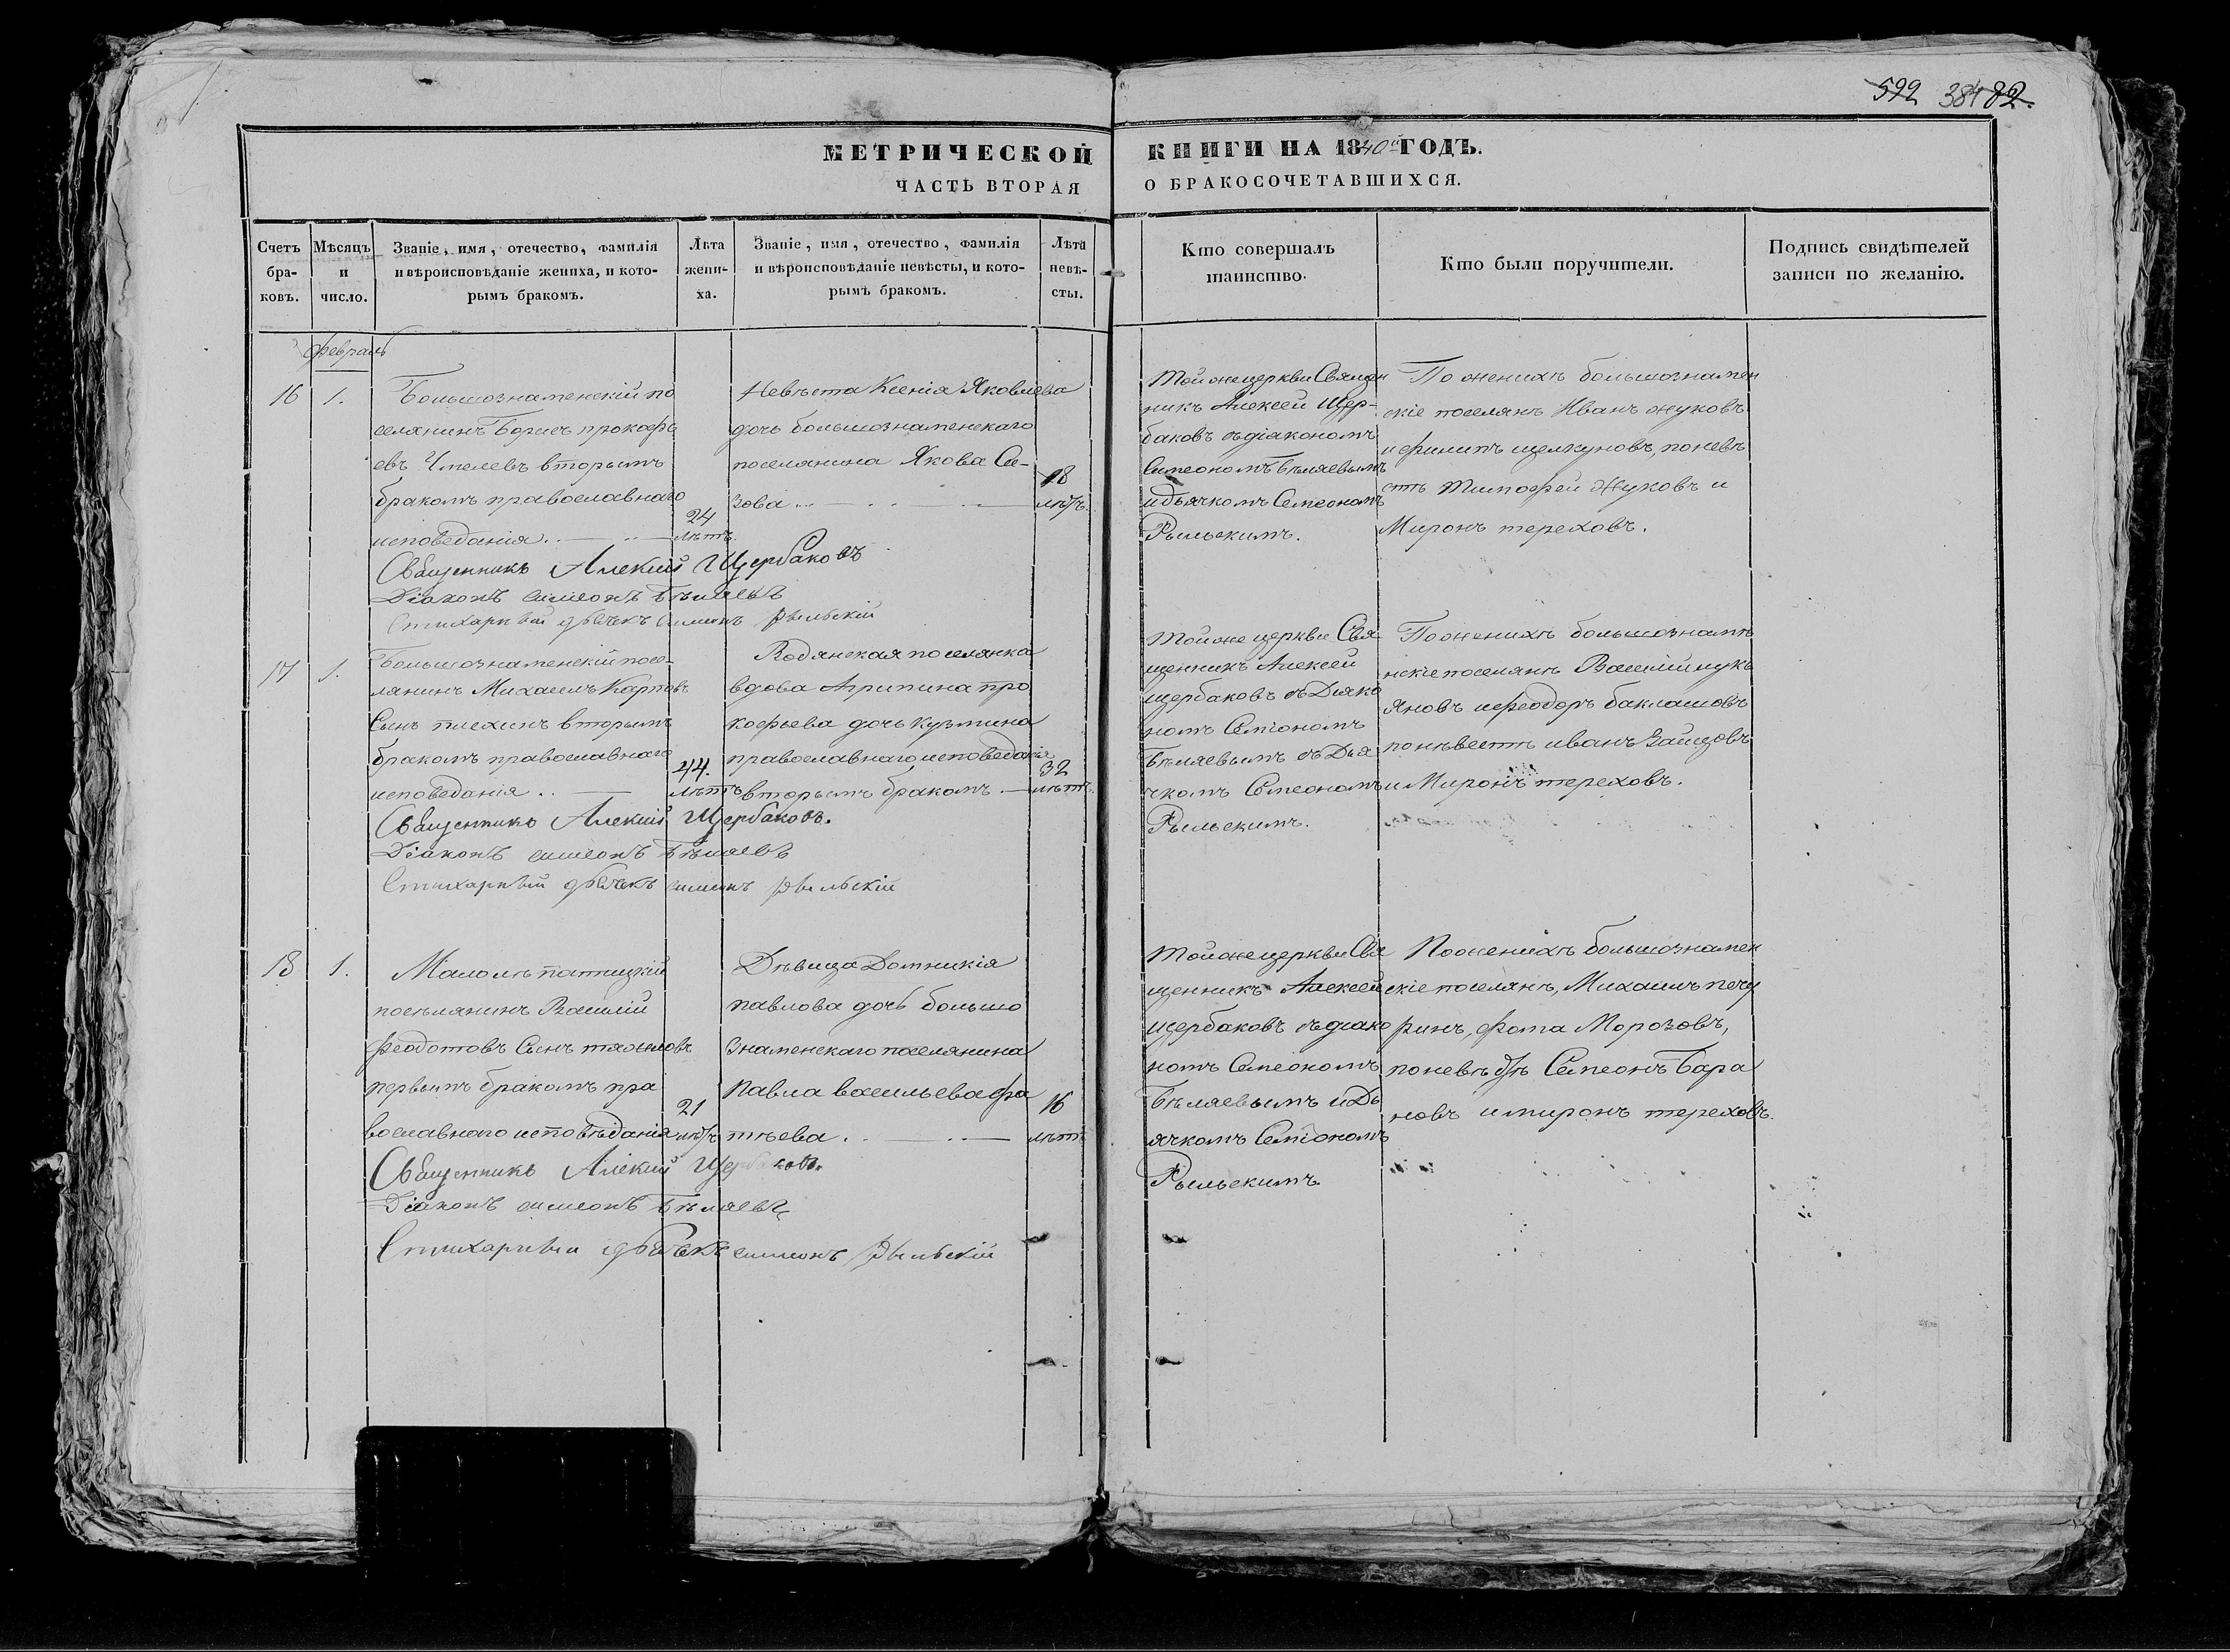 592 384 82.
МЕТРИЧЕСКОЙ КНИГИ НА 1840й ГОДЪ.
ЧАСТЬ ВТОРАЯ О БРАКОСОЧЕТАВШИХСЯ.
Счетъ бра-
ковъ.
Мѣсяцъ
и
число.
Званіе, имя, отечество, фамилія
и вѣроисповѣданіе жениха, и кото-
рымъ бракомъ.
Лѣта
жени-
ха.
Званіе, имя, отечество, фамилія
и вѣроисповѣданіе невѣсты, и кото-
рымъ бракомъ.
Лѣта
невѣ-
сты.
Кто совершалъ
таинство.
Кто были поручители.
Подпись свидѣтелей
записи по желанію.
февраль
16
1.
Большознаменскій по
селянинъ Борисъ прокофь
евъ вторымъ
бракомъ православнаго
исповеданія
24
лѣтъ.
Невѣста Ксенія Яковлева
дочь большознаменскаго
поселянина Якова Си-
зова
18
лѣтъ.
Той же церкви Священ
никъ Алексей Щер-
баковъ съ діакономъ
Симеономъ Бѣляевымъ
и дьячкомъ Семеономъ
Рыльскимъ.
По женихѣ большознамен
скіе поселянѣ Иванъ жуковъ
и филипъ щелкуновъ, по невѣ
стѣ Тимофей Жуковъ и
Миронъ тереховъ.
Священникъ Алексій Щербаковъ
Діаконъ симеонъ Бѣляевъ
Стихарный дьячекъ симеонъ Рыльскій
17
1.
Большознаменскій посе-
лянинъ Михаилъ Карповъ
Сынъ плехинъ вторымъ
бракомъ православнаго
исповеданія
44.
лѣтъ
Водянская поселянка
вдова Агрипина про
кофьева дочь кузмина
православнаго исповеданія
вторымъ бракомъ
32
лѣтъ.
Той же церкви Свя
щенникъ Алексей
щербаковъ съ Дияко
номъ Семіономъ
Бѣляевымъ съ Дья
чкомъ Семеономъ
Рыльскимъ.
По женихѣ большознаме
нскіе поселянѣ Василій лукь
яновъ и феодоръ баклашовъ
по нѣвестѣ иванъ Зайцовъ
и Миронъ тереховъ.
Священникъ Алексій Щербаковъ.
Діаконъ симеонъ Бѣляевъ
Стихарный дьячекъ симеонъ Рыльскій
18
1.
поселянинъ Василій
феодотовъ Сынъ
первымъ бракомъ пра
вославнаго исповѣданія
21
лѣтъ
Дѣвица Домникія
павлова дочь большо
знаменскаго поселянина
Павла васильева фа
тѣева
16
лѣтъ
Той же церкви Свя
щенникъ Алексей
щербаковъ съ діако
номъ Симеономъ
Бѣляевымъ и Дь
ячкомъ Семіономъ
Рыльскимъ.
По женихѣ большознамен
скіе поселянѣ, Михаилъ печу
ринъ, фома Морозовъ,
по невѣстѣ Семеонъ Бара
новъ и миронъ тереховъ.
Священникъ Алексій Щербаковъ.
Діаконъ симеонъ Бѣляевъ
Стихарный дьячекъ симеонъ Рыльскій